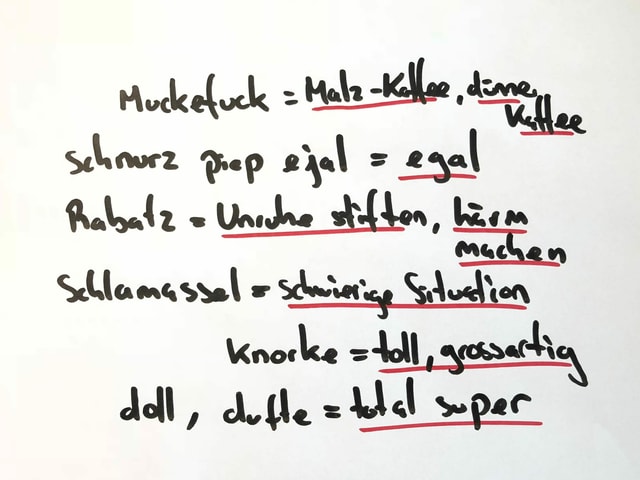 Muckefuck = Malz-Kaffee, dünne
Kaffee
Schnurz piep ejal = egal
Rabatz = Unruhe stiften, härm
machen
Schlamassel = schwierige Situation
Knorke = toll, grossartig
doll, dufte = total super